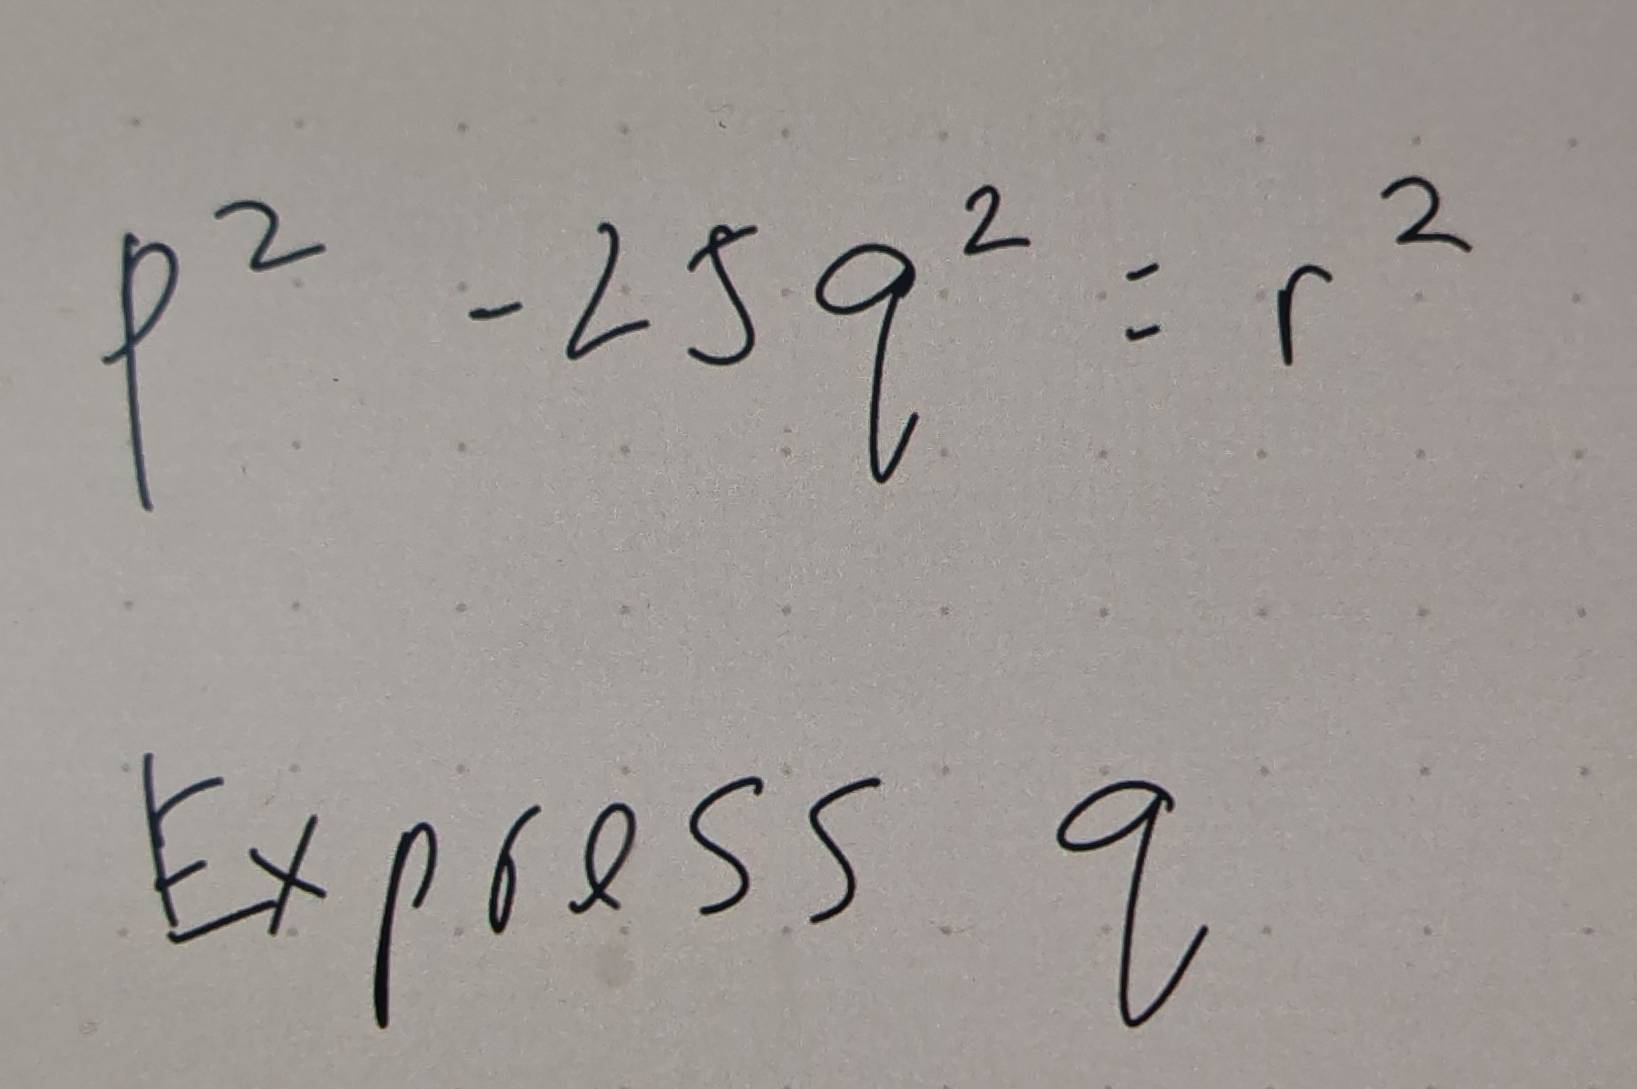 p² - 25q² = r²
Express q